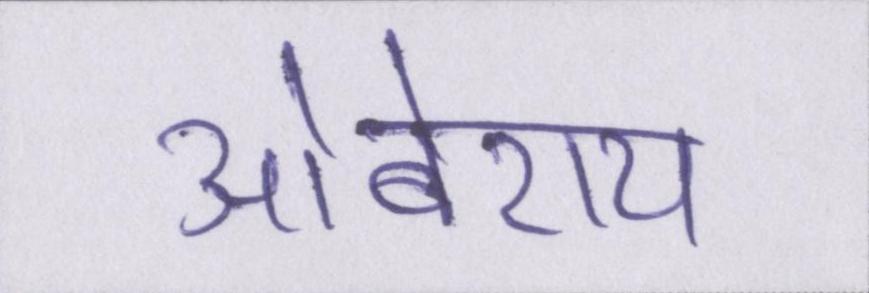 ओबेराय